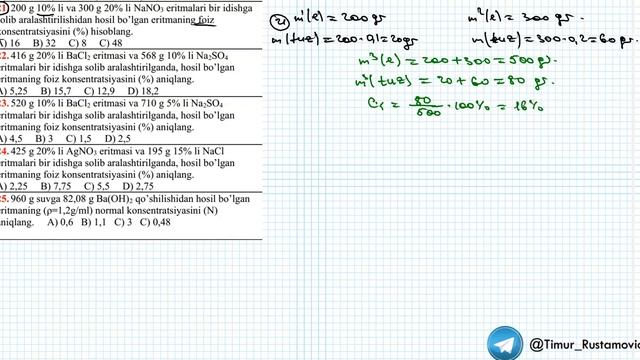 21. 200 g 10% li va 300 g 20% li NaNO₃ eritmalari bir idishga
solib aralashtirilishidan hosil bo'lgan eritmaning foiz
konsentratsiyasini (%) hisoblang.
A) 16 B) 32 C) 8 C) 48
22. 416 g 20% li BaCl₂ eritmasi va 568 g 10% li Na₂SO₄
eritmalari bir idishga solib aralashtirilganda, hosil bo'lgan
eritmaning foiz konsentratsiyasini (%) aniqlang.
A) 5,25 B) 15,7 C) 12,9 D) 18,2
23. 520 g 10% li BaCl₂ eritmasi va 710 g 5% li Na₂SO₄
eritmalari bir idishga solib aralashtirilganda, hosil bo'lgan
eritmaning foiz konsentratsiyasini (%) aniqlang.
A) 4,5 B) 3 C) 1,5 D) 2,5
24. 425 g 20% li AgNO₃ eritmasi va 195 g 15% li NaCl
eritmalari bir idishga solib aralashtirilganda, hosil bo'lgan
eritmaning foiz konsentratsiyasini (%) aniqlang.
A) 2,25 B) 7,75 C) 5,5 D) 2,75
25. 960 g suvga 82,08 g Ba(OH)₂ qo'shilishidan hosil bo'lgan
eritmaning (ρ=1,2g/ml) normal konsentratsiyasini (N)
aniqlang. A) 0,6 B) 1,1 C) 3 C) 0,48
21 m¹(e) = 200 gr m²(e) = 300 gr.
m(tuz) = 200·0,1 = 20gr m(tuz) = 300·0,2 = 60 gr.
m³(e) = 200 + 300 = 500 gr.
m³(tuz) = 20 + 60 = 80 gr.
C₁ = 80/500 · 100% = 16%
@Timur_Rustamovic